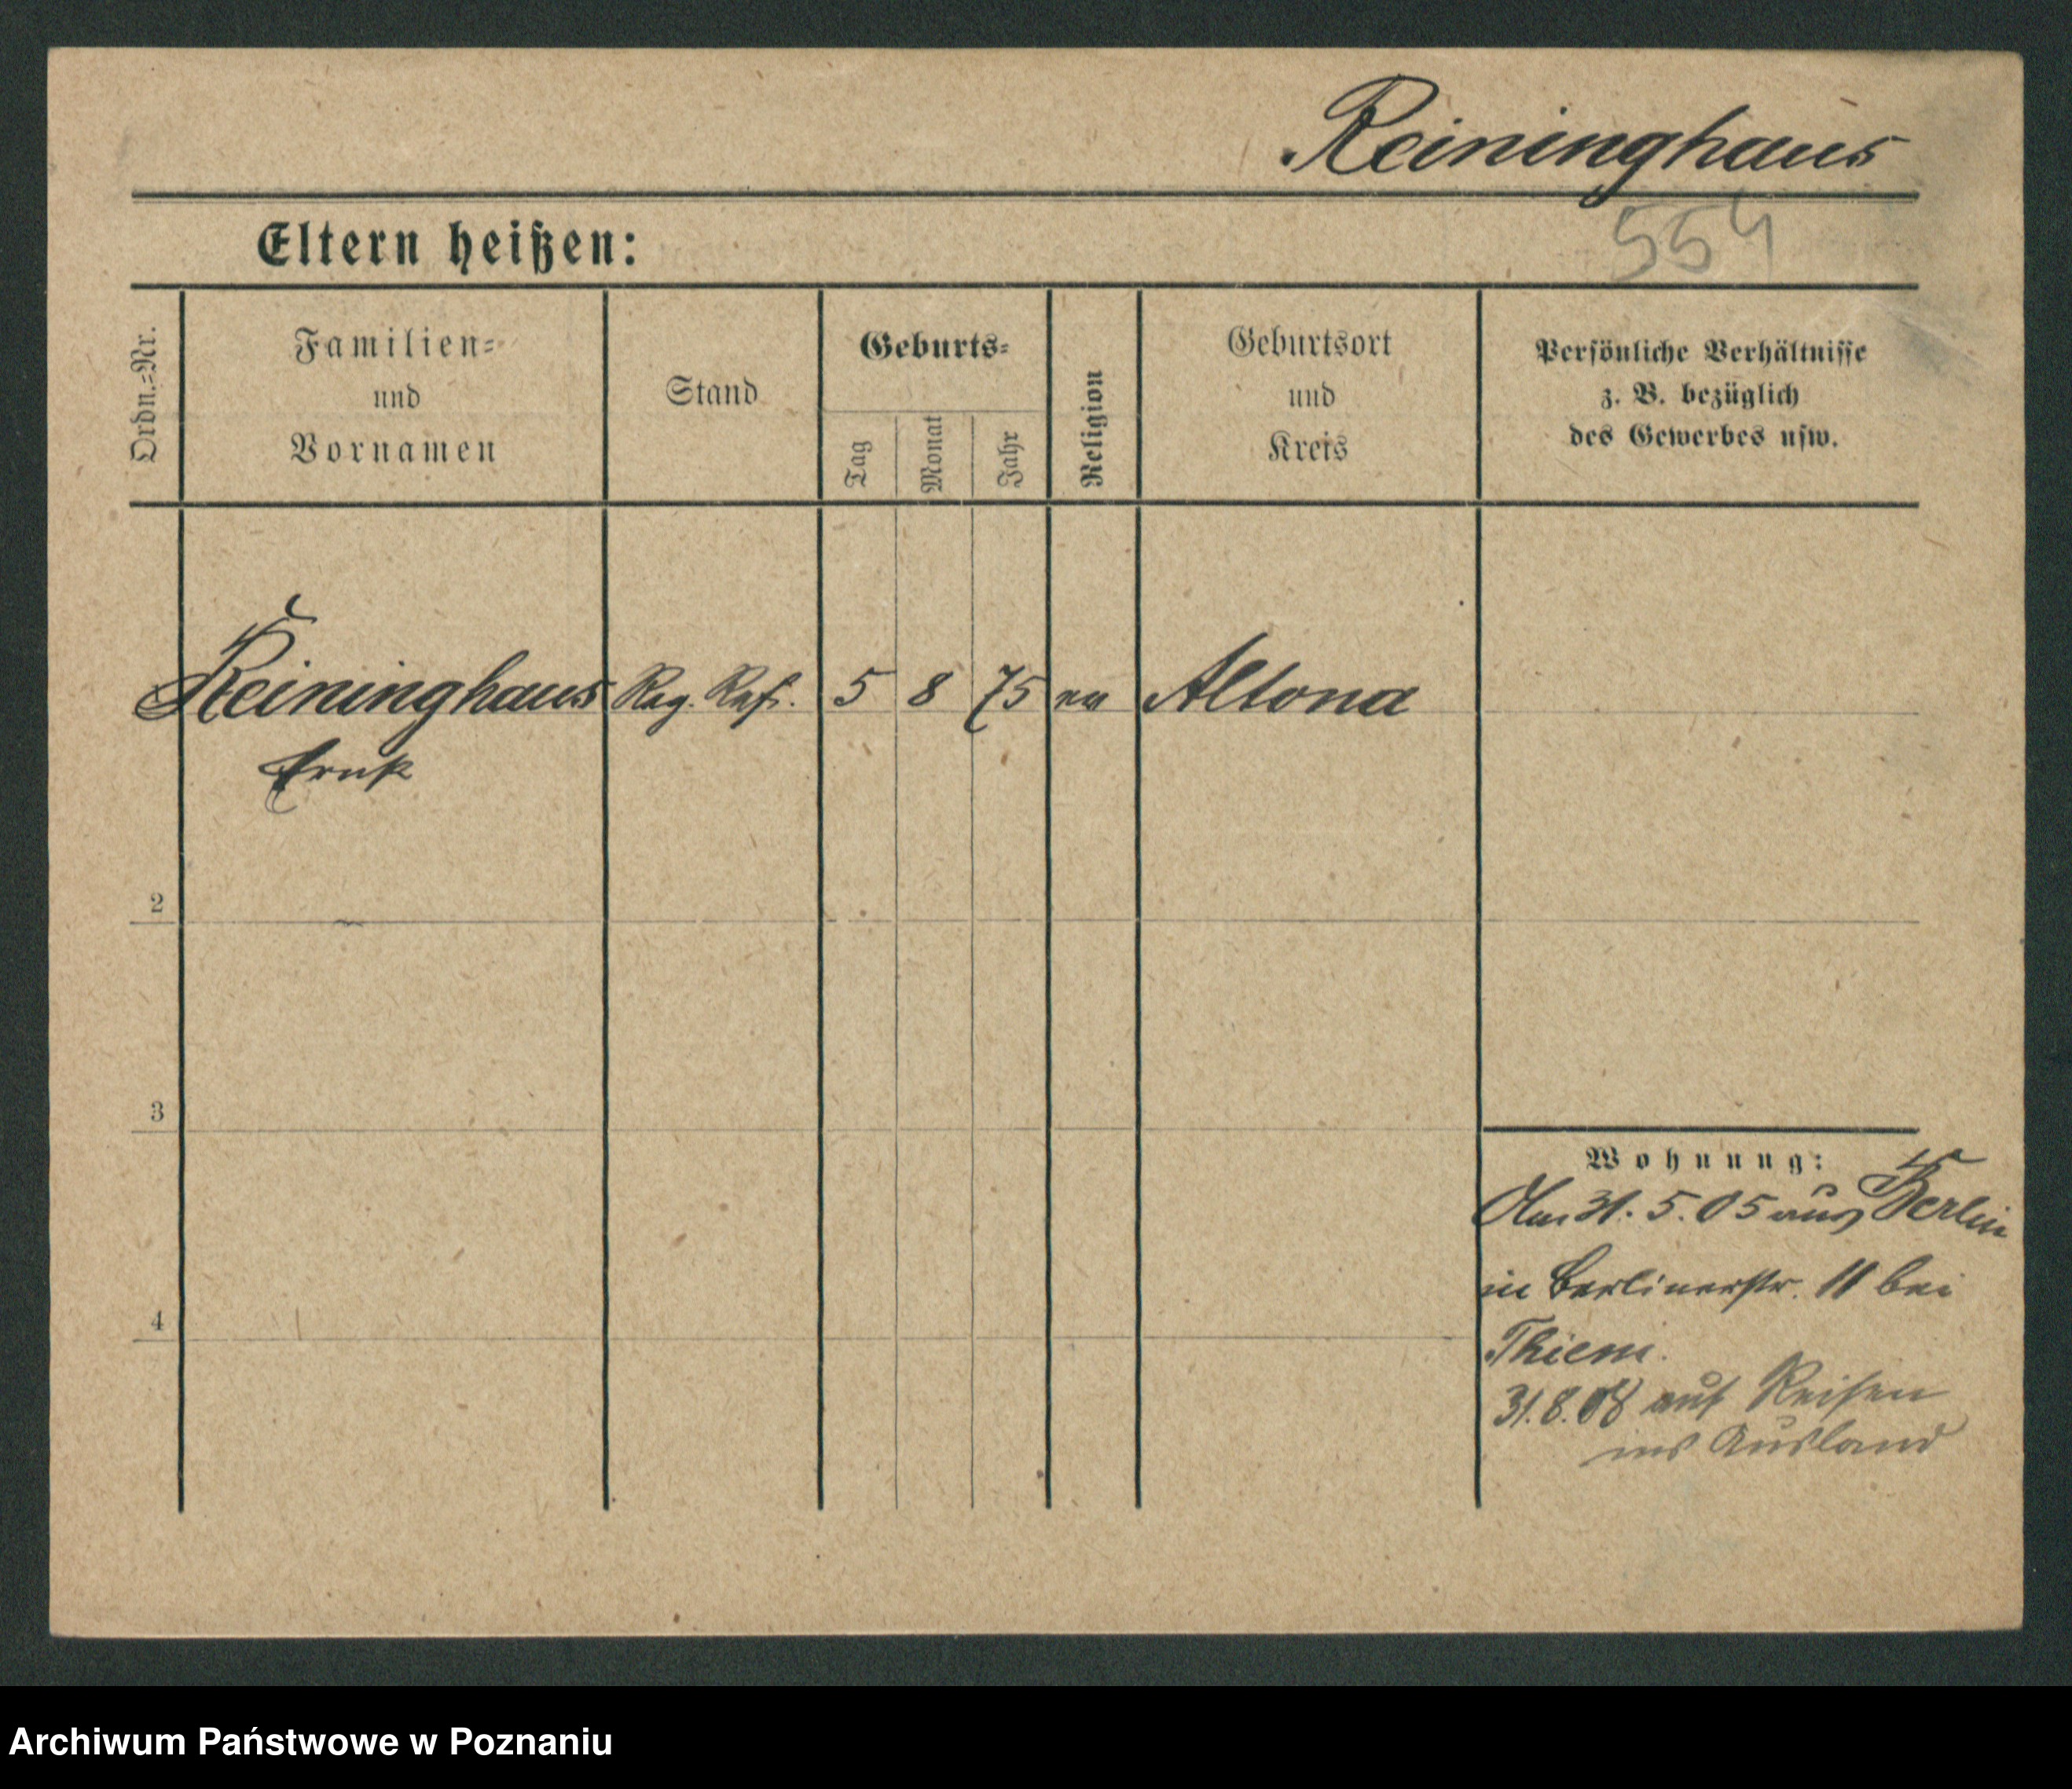 Reininghaus
554
Eltern heißen:
Ordn.=Nr.
Familien=
und
Vornamen
Stand
Geburts=
Tag
Monat
Jahr
Religion
Geburtsort
und
Kreis
Persönliche Verhältnisse
z. B. bezüglich
des Gewerbes usw.
Reininghaus Reg. Ref. 5 8 75 ev Altona
Ernst
2
3
4
Wohnung:
Am 31. 5. 05 aus Berlin
in Berlinerstr. 11 bei
Thiem.
31.8.08 auf Reisen
ins Ausland
Archiwum Państwowe w Poznaniu